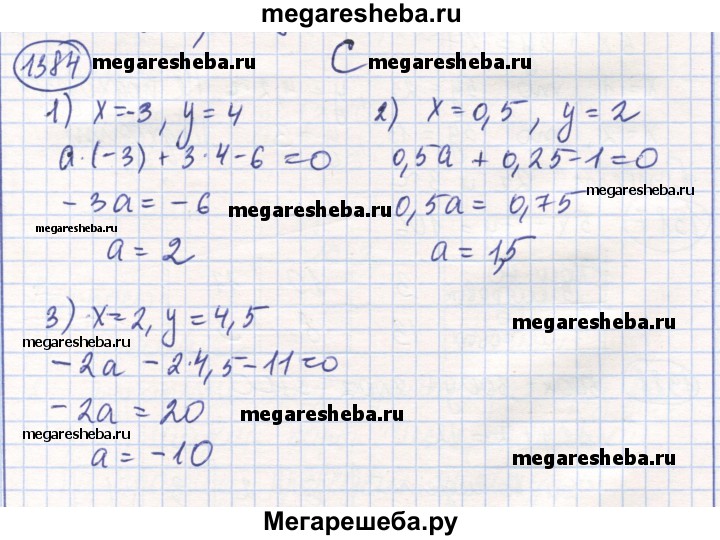 megaresheba.ru
1384 megaresheba.ru C megaresheba.ru
1) x=-3, y=4
a·(-3)+3·4-6=0
-3a=-6 megaresheba.ru
megaresheba.ru
a=2
2) x=0,5, y=2
0,5a+0,25-1=0
megaresheba.ru
0,5a=0,75
a=1,5
3) x=2, y=4,5
megaresheba.ru
megaresheba.ru
-2a-2·4,5-11=0
-2a=20 megaresheba.ru
megaresheba.ru
a=-10
megaresheba.ru
Мегарешеба.ру